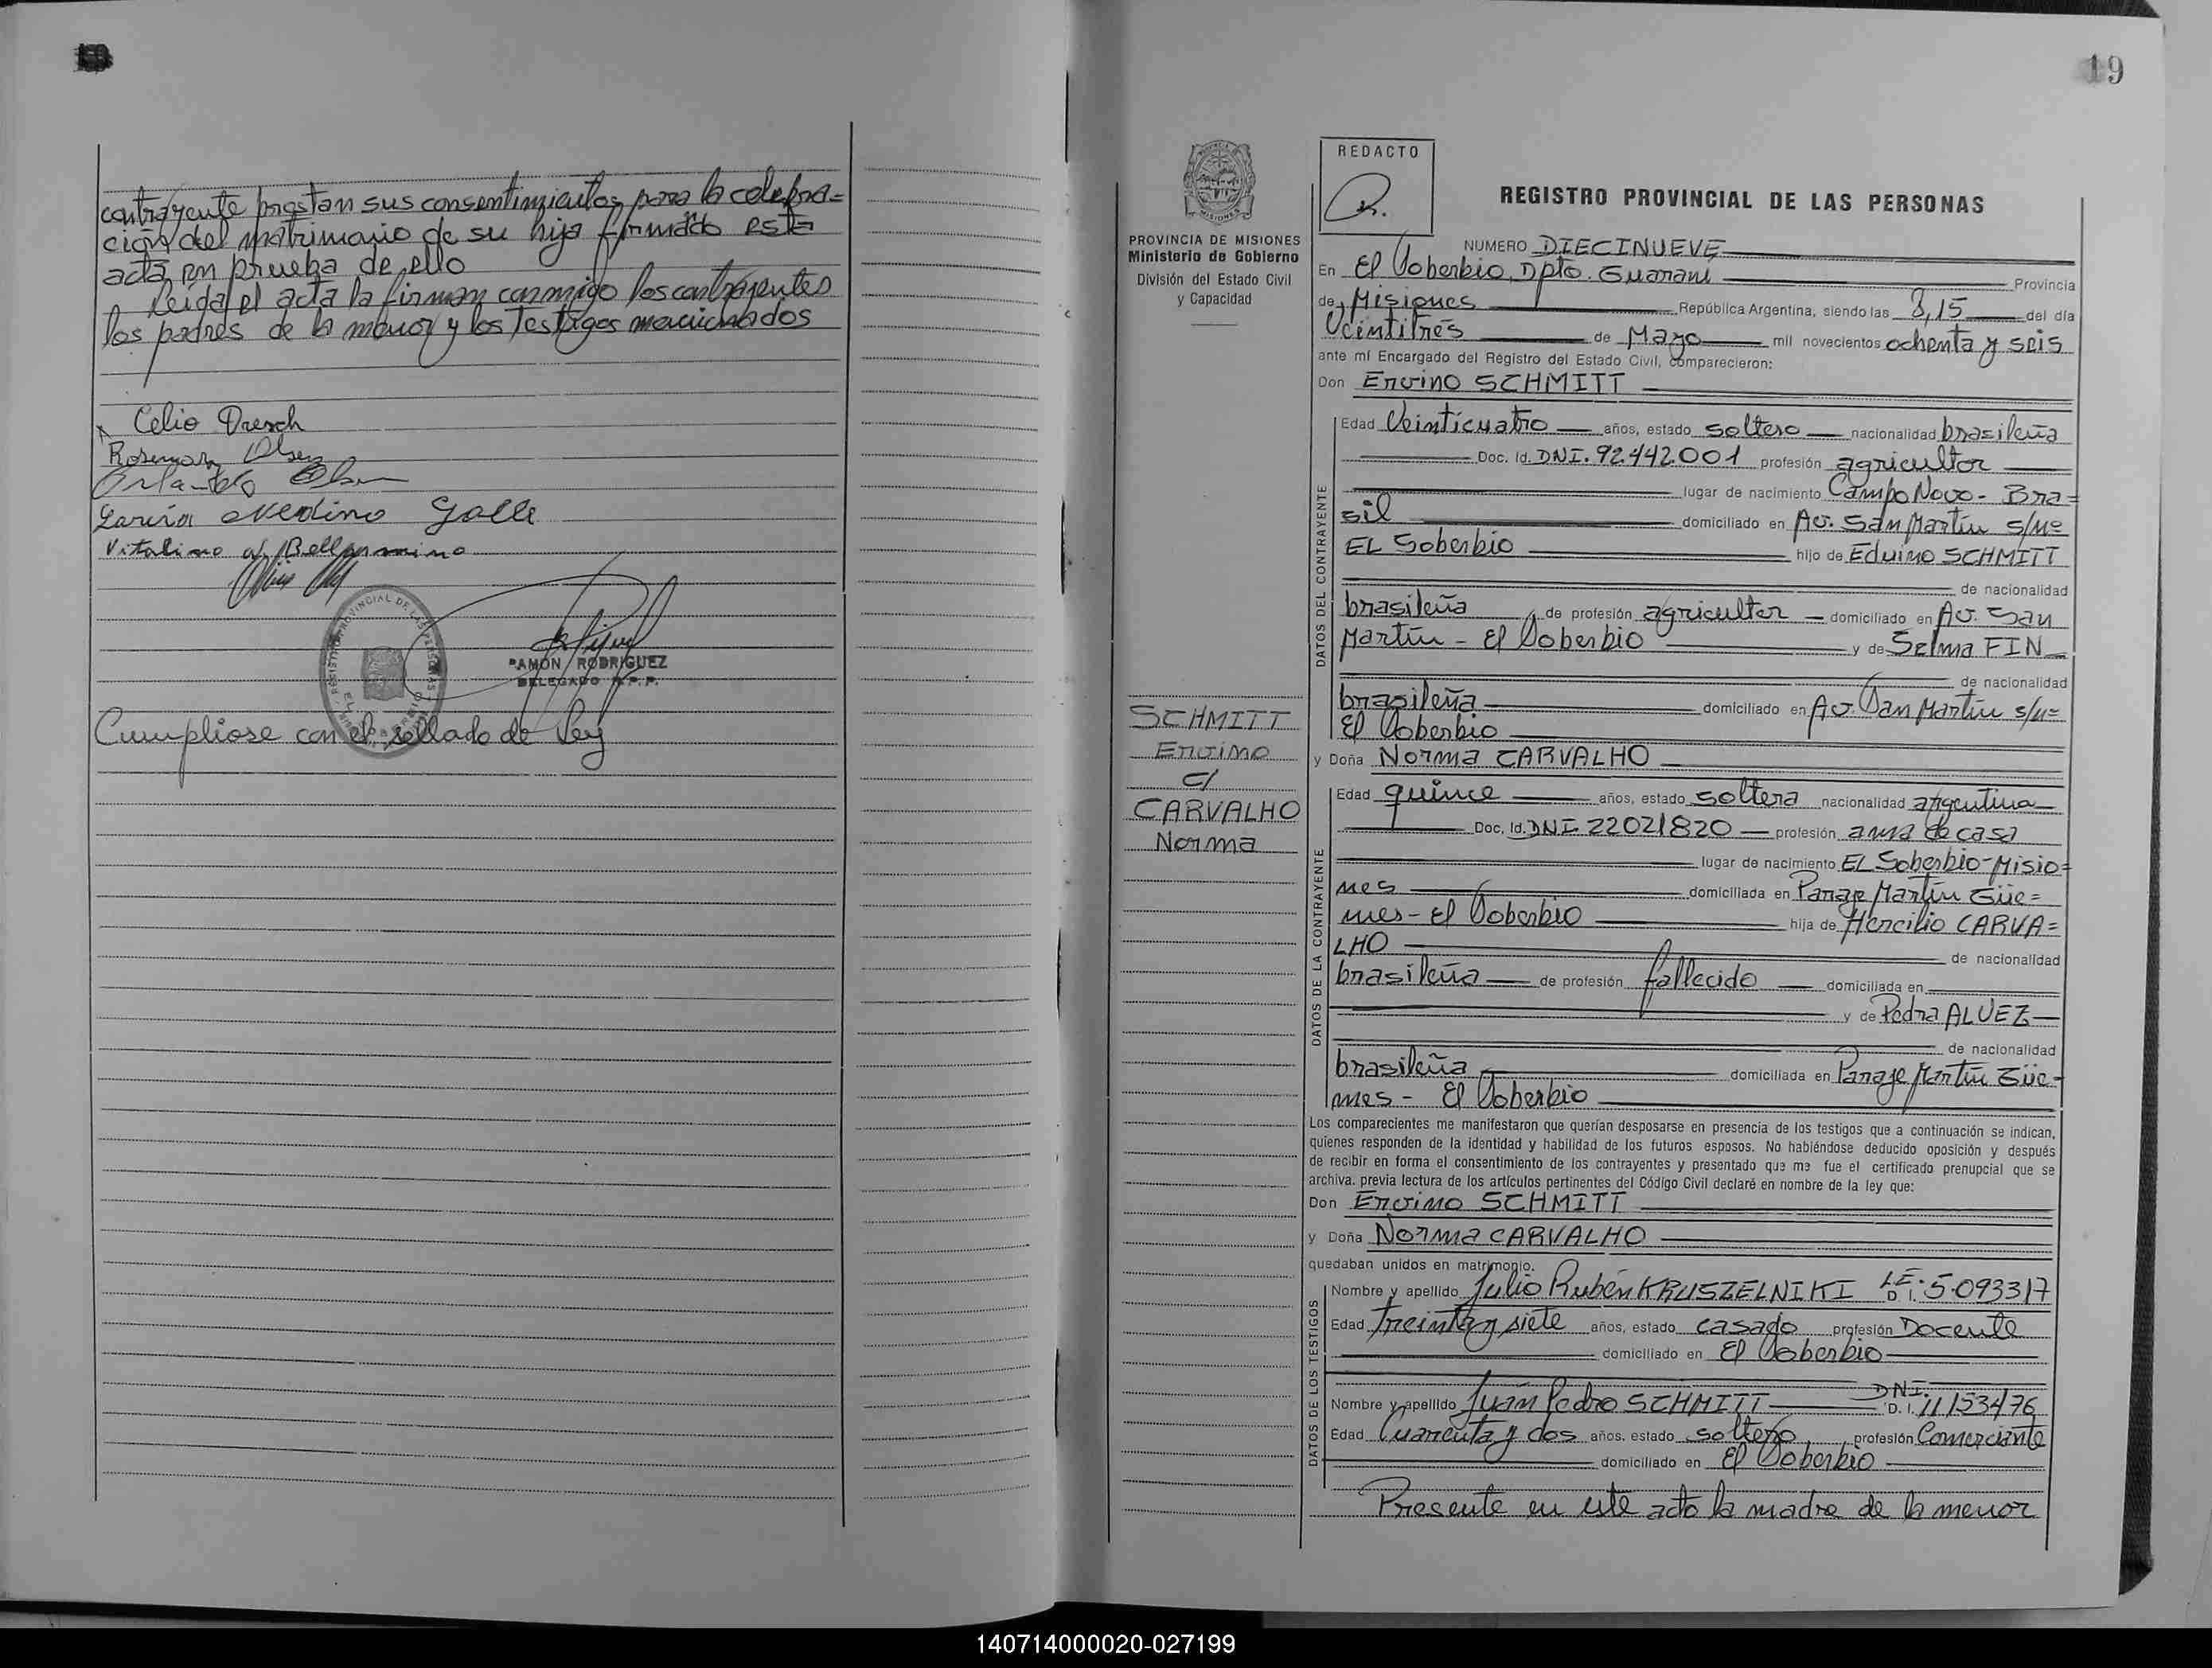 contrayente prestan sus consentimientos para la celebra=
ción del matrimonio de su hija firmando esta
acta en prueba de ello
Leida el acta la firman conmigo los contrayentes
los padres de la menor y los Testigos mencionados
Celio Dresch
Rosemary Olsen
Orlando Olsen
Vitalino Bellarmino
REGISTRO PROVINCIAL DE LAS PERSONAS
RAMON RODRIGUEZ
DELEGADO R.P.P.
Cumpliose con el sellado de Ley
19
REDACTO
PROVINCIA DE MISIONES
Ministerio de Gobierno
División del Estado Civil
y Capacidad
SCHMITT
Ervino
c/
CARVALHO
Norma
REGISTRO PROVINCIAL DE LAS PERSONAS
NUMERO DIECINUEVE
En El Soberbio, Dpto. Guaraní Provincia
de Misiones República Argentina, siendo las 8,15 del día
Veintitrés de Mayo mil novecientos ochenta y seis
ante mí Encargado del Registro del Estado Civil, comparecieron:
Don Ervino SCHMITT
DATOS DEL CONTRAYENTE
Edad Veinticuatro años, estado soltero nacionalidad brasileña
Doc. Id. DNI. 92.442.001 profesión agricultor
lugar de nacimiento Campo Novo - Bra=
sil domiciliado en Av. San Martín s/nº
EL Soberbio hijo de Eduino SCHMITT
de nacionalidad
brasileña de profesión agricultor domiciliado en Av. San
Martín - El Soberbio y de Selma FIN
de nacionalidad
brasileña domiciliado en Av. San Martín s/nº
El Soberbio
y Doña Norma CARVALHO
DATOS DE LA CONTRAYENTE
Edad quince años, estado soltera nacionalidad argentina
Doc. Id. DNI 22021820 profesión ama de casa
lugar de nacimiento EL Soberbio-Misio=
nes domiciliada en Paraje Martín Güe=
mes - El Soberbio hija de Hercilio CARVA=
LHO de nacionalidad
brasileña de profesión fallecido domiciliada en
y de Pedra ALVEZ
de nacionalidad
brasileña domiciliada en Paraje Martín Güe-
mes - El Soberbio
Los comparecientes me manifestaron que querían desposarse en presencia de los testigos que a continuación se indican,
quienes responden de la identidad y habilidad de los futuros esposos. No habiéndose deducido oposición y después
de recibir en forma el consentimiento de los contrayentes y presentado que me fue el certificado prenupcial que se
archiva. previa lectura de los artículos pertinentes del Código Civil declaré en nombre de la ley que:
Don Ervino SCHMITT
y Doña Norma CARVALHO
quedaban unidos en matrimonio.
DATOS DE LOS TESTIGOS
Nombre y apellido Julio Rubén KRUSZELNIKI L.E. D. I. 5.093317
Edad Treinta y siete años, estado casado profesión Docente
domiciliado en El Soberbio
Nombre y apellido Juan Pedro SCHMITT DNI. D. I. 11153476
Edad Cuarenta y dos años, estado soltero profesión Comerciante
domiciliado en El Soberbio
Presente en este acto la madre de la menor
140714000020-027199